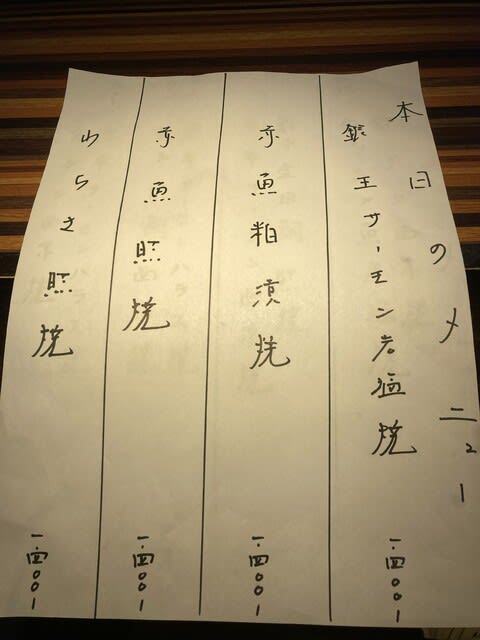 本日のメニュー
銀王サーモン岩塩焼 一.四〇〇ー
赤魚粕漬焼 一.四〇〇ー
赤魚照焼 一.四〇〇ー
わらさ照焼 一.四〇〇ー